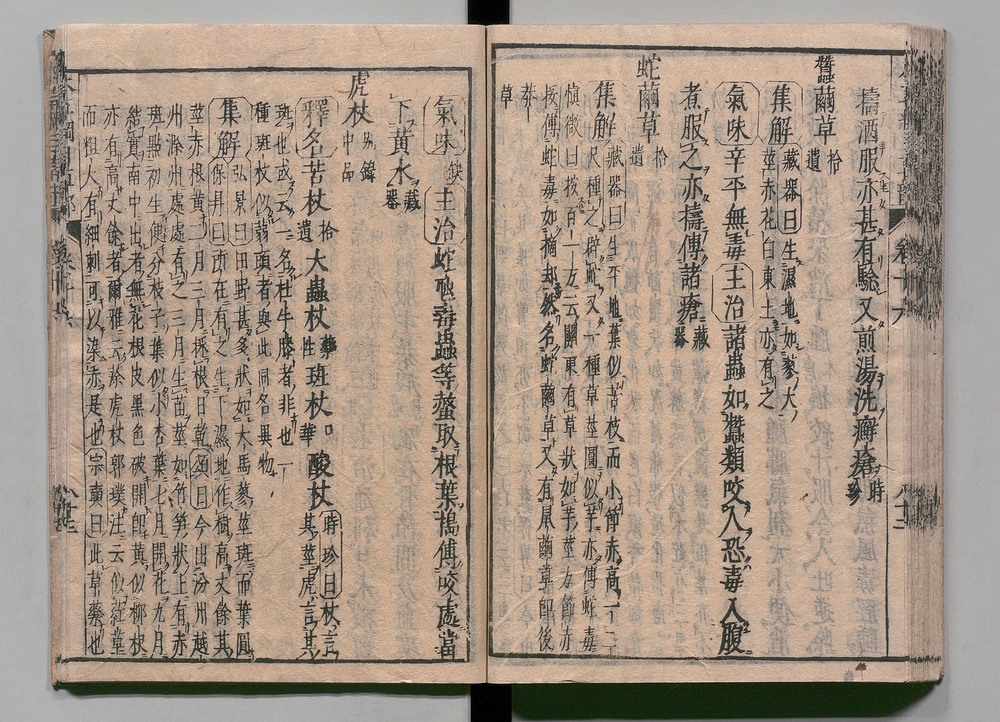 擣酒服亦甚有驗又煎湯洗癬瘡時珍
蠶繭草拾遺
集解藏器曰生濕地如蓼大莖赤花白東土亦有之
氣味辛平無毒主治諸蟲如蠶類咬人恐毒入腹
煮服之亦擣傅諸瘡藏器
蛇繭草拾遺
集解藏器曰生平地葉似苦杖而小節赤高一二尺種之辟蛇又一種草莖圓似芋亦傅蛇毒
慎微曰按百一方云關東有草狀如芋莖方節赤
挼傅蛇毒如摘却然名蛇草又有鼠草即後
莽草
氣味缺主治蛇虺毒蟲等螫取根葉搗傅咬處當
下黃水藏器
虎杖別錄中品
釋名苦杖拾遺大蟲杖藥性斑杖日華酸杖時珍曰杖言其莖虎言其
斑也或云一名杜牛膝者非也一
種斑杖似蒻頭者與此同名異物
集解弘景曰田野甚多狀如大馬蓼莖斑而葉圓
保昇曰所在有之生下濕地作樹高丈餘其
莖赤根黃二月三月採根日乾頌曰今出汾州越
州滁州處處有之三月生苗莖如竹筍狀上有赤
斑點初生便分枝丫葉似小杏葉七月開花九月
結實南中出者無花根皮黑色破開即黃似柳根
亦有高丈餘者爾雅云蒤虎杖郭璞注云似葒草
而粗大有細刺可以染赤是也宗奭曰此草藥也